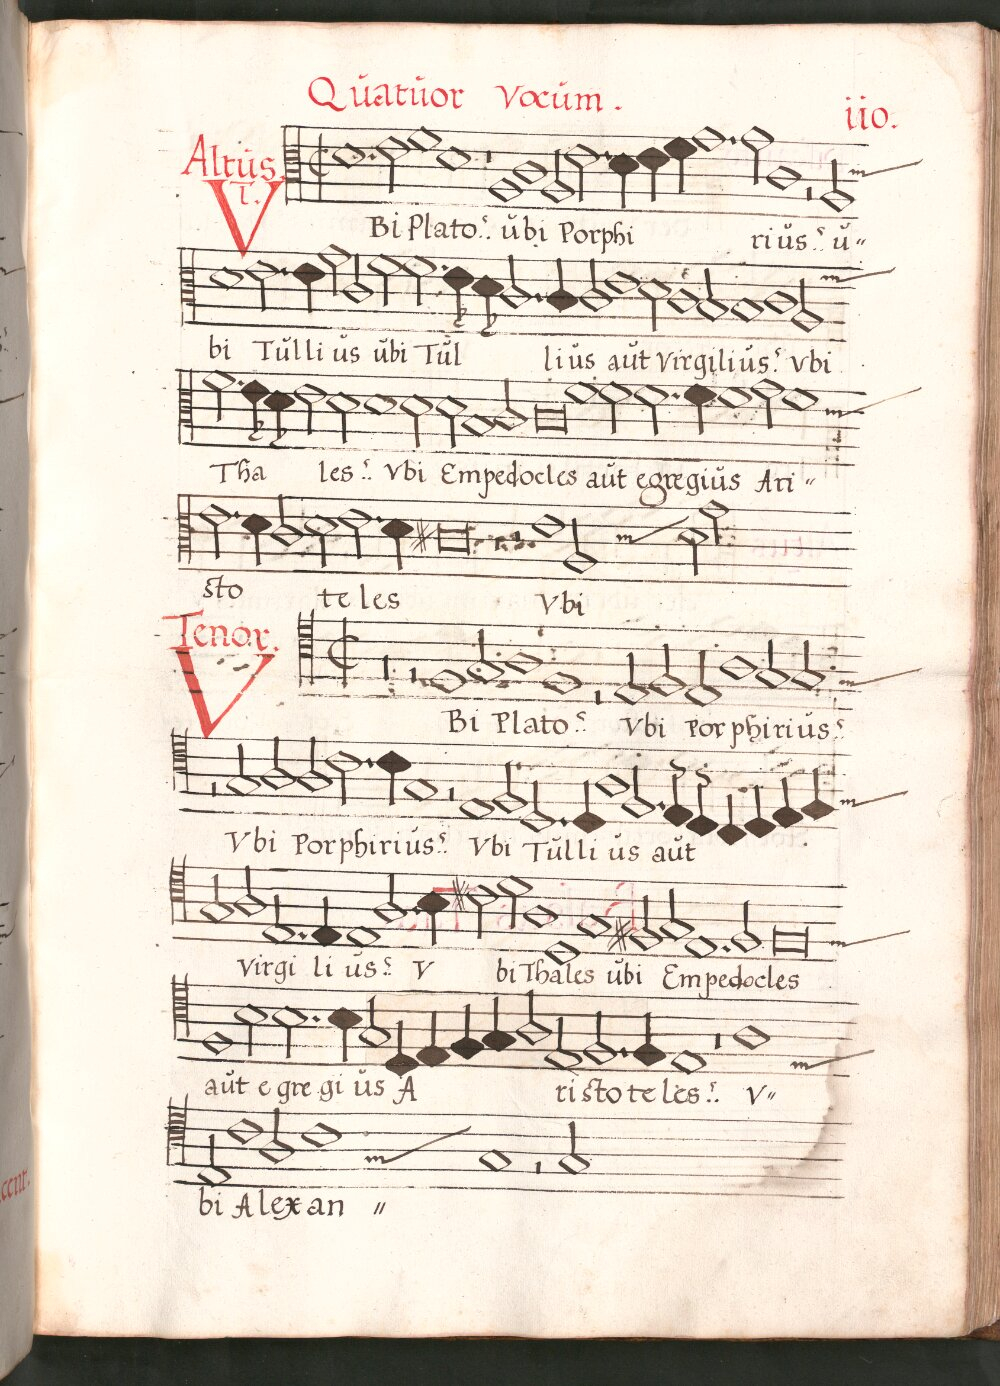 Quatŭor Vocŭm.
iio.
Altŭs.
VT.
Bi Plato? ŭbi Porphi riŭs? ŭ"
bi Tŭlli ŭs ŭbi Tŭl liŭs aŭt Virgiliŭs? Vbi
Tha les? Vbi Empedocles aŭt egregiŭs Ari"
sto te les Vbi
Tenor.
V
Bi Plato? Vbi Porphiriŭs?
Vbi Porphiriŭs? Vbi Tŭlli ŭs aŭt
Virgi li ŭs? V bi Thales ŭbi Empedocles
aŭt e gre gi ŭs A ri sto te les? V"
bi Alexan "
cent.